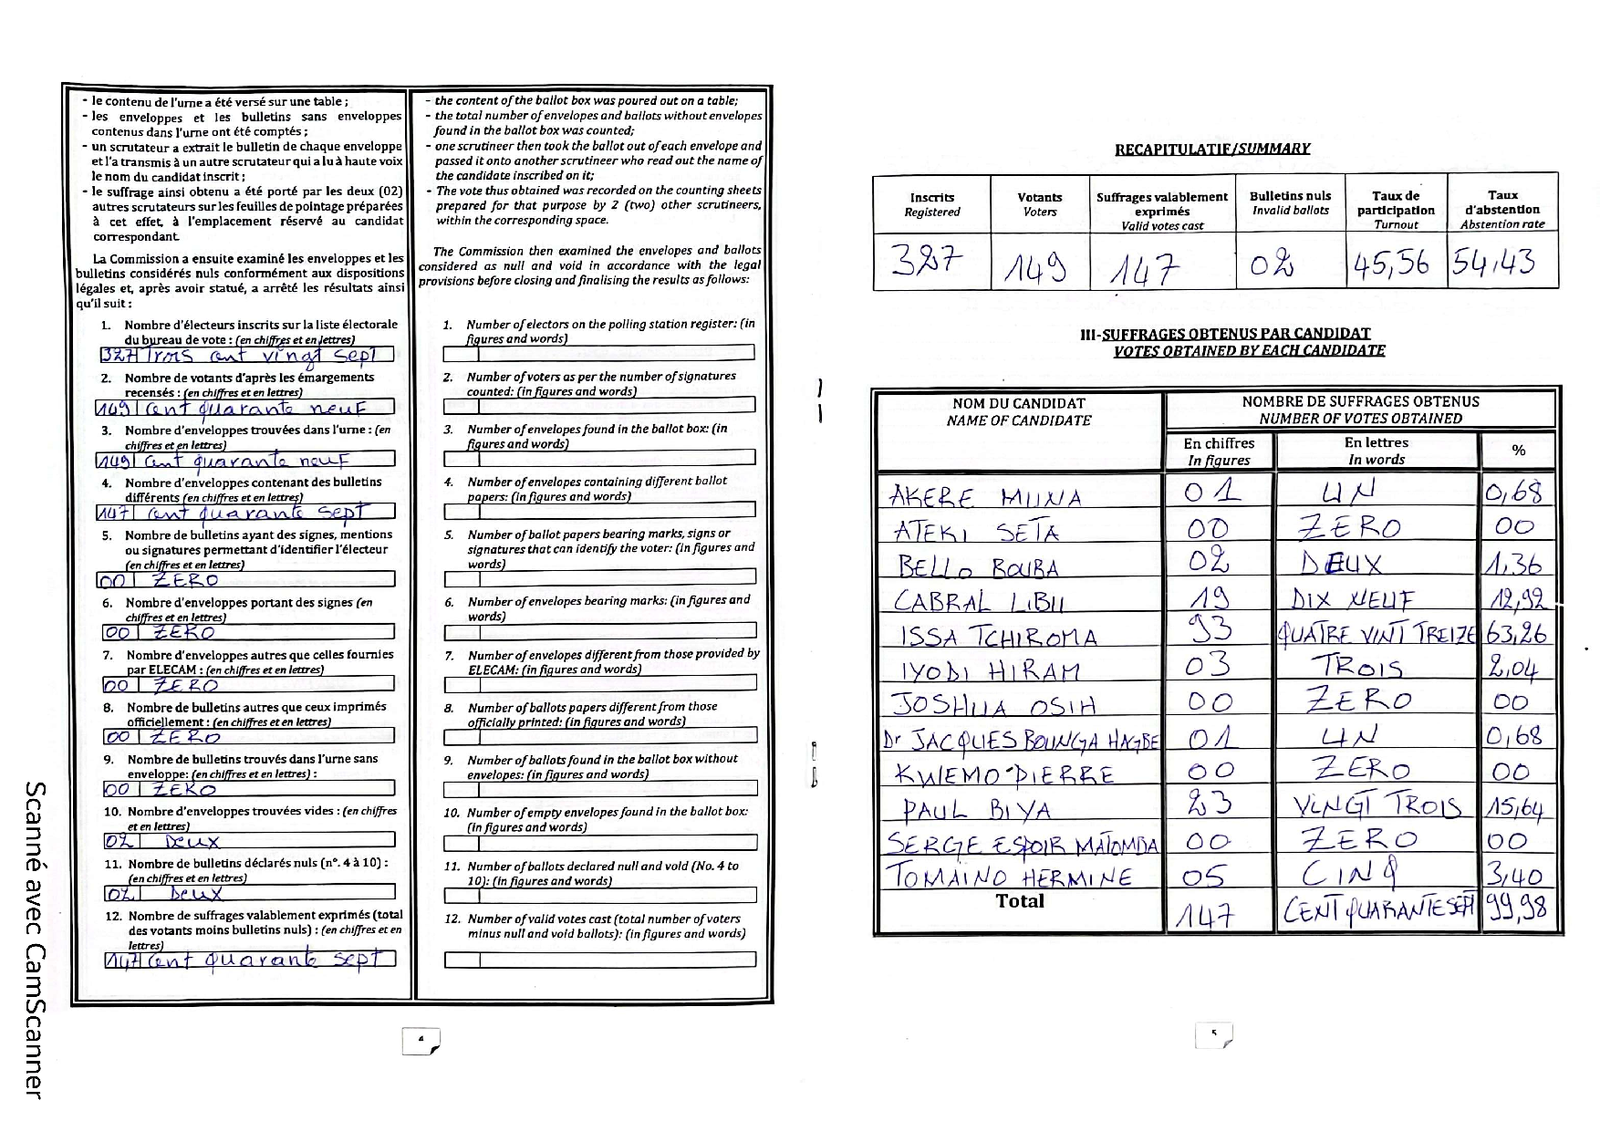 - le contenu de l'urne a été versé sur une table ;
- les enveloppes et les bulletins sans enveloppes
contenus dans l'urne ont été comptés ;
- un scrutateur a extrait le bulletin de chaque enveloppe
et l'a transmis à un autre scrutateur qui a lu à haute voix
le nom du candidat inscrit ;
- le suffrage ainsi obtenu a été porté par les deux (02)
autres scrutateurs sur les feuilles de pointage préparées
à cet effet, à l'emplacement réservé au candidat
correspondant.
La Commission a ensuite examiné les enveloppes et les
bulletins considérés nuls conformément aux dispositions
légales et, après avoir statué, a arrêté les résultats ainsi
qu'il suit :
1. Nombre d'électeurs inscrits sur la liste électorale
du bureau de vote : (en chiffres et en lettres)
327 Trois cent vingt sept
2. Nombre de votants d'après les émargements
recensés : (en chiffres et en lettres)
149 cent quarante neuf
3. Nombre d'enveloppes trouvées dans l'urne : (en
chiffres et en lettres)
149 cent quarante neuf
4. Nombre d'enveloppes contenant des bulletins
différents (en chiffres et en lettres)
147 cent quarante sept
5. Nombre de bulletins ayant des signes, mentions
ou signatures permettant d'identifier l'électeur
(en chiffres et en lettres)
00 ZERO
6. Nombre d'enveloppes portant des signes (en
chiffres et en lettres)
00 ZERO
7. Nombre d'enveloppes autres que celles fournies
par ELECAM : (en chiffres et en lettres)
00 ZERO
8. Nombre de bulletins autres que ceux imprimés
officiellement : (en chiffres et en lettres)
00 ZERO
9. Nombre de bulletins trouvés dans l'urne sans
enveloppe: (en chiffres et en lettres) :
00 ZERO
10. Nombre d'enveloppes trouvées vides : (en chiffres
et en lettres)
02 Deux
11. Nombre de bulletins déclarés nuls (n°. 4 à 10) :
(en chiffres et en lettres)
02 Deux
12. Nombre de suffrages valablement exprimés (total
des votants moins bulletins nuls) : (en chiffres et en
lettres)
147 cent quarante sept
- the content of the ballot box was poured out on a table;
- the total number of envelopes and ballots without envelopes
found in the ballot box was counted;
- one scrutineer then took the ballot out of each envelope and
passed it onto another scrutineer who read out the name of
the candidate inscribed on it;
- The vote thus obtained was recorded on the counting sheets
prepared for that purpose by 2 (two) other scrutineers,
within the corresponding space.
The Commission then examined the envelopes and ballots
considered as null and void in accordance with the legal
provisions before closing and finalising the results as follows:
1. Number of electors on the polling station register: (in
figures and words)
2. Number of voters as per the number of signatures
counted: (in figures and words)
3. Number of envelopes found in the ballot box: (in
figures and words)
4. Number of envelopes containing different ballot
papers: (in figures and words)
5. Number of ballot papers bearing marks, signs or
signatures that can identify the voter: (in figures and
words)
6. Number of envelopes bearing marks: (in figures and
words)
7. Number of envelopes different from those provided by
ELECAM: (in figures and words)
8. Number of ballots papers different from those
officially printed: (in figures and words)
9. Number of ballots found in the ballot box without
envelopes: (in figures and words)
10. Number of empty envelopes found in the ballot box:
(in figures and words)
11. Number of ballots declared null and void (No. 4 to
10): (in figures and words)
12. Number of valid votes cast (total number of voters
minus null and void ballots): (in figures and words)
4
Scanné avec CamScanner
RECAPITULATIF/SUMMARY
Inscrits Registered | Votants Voters | Suffrages valablement exprimés Valid votes cast | Bulletins nuls Invalid ballots | Taux de participation Turnout | Taux d'abstention Abstention rate
327 149 147 02 45,56 54,43
III-SUFFRAGES OBTENUS PAR CANDIDAT
VOTES OBTAINED BY EACH CANDIDATE
NOM DU CANDIDAT NOMBRE DE SUFFRAGES OBTENUS
NAME OF CANDIDATE NUMBER OF VOTES OBTAINED
En chiffres En lettres %
In figures In words
AKERE MUNA 01 UN 0,68
ATEKI SETA 00 ZERO 00
BELLO BOUBA 02 DEUX 1,36
CABRAL LIBII 19 DIX NEUF 12,92
ISSA TCHIROMA 93 QUATRE VINT TREIZE 63,26
IYODI HIRAM 03 TROIS 2,04
JOSHUA OSIH 00 ZERO 00
Dr JACQUES BOUNGA HAGBE 01 UN 0,68
KWEMO PIERRE 00 ZERO 00
PAUL BIYA 23 VINGT TROIS 15,64
SERGE ESPOIR MATOMBA 00 ZERO 00
TOMAINO HERMINE 05 CINQ 3,40
Total 147 CENT QUARANTE SEPT 99,98
5